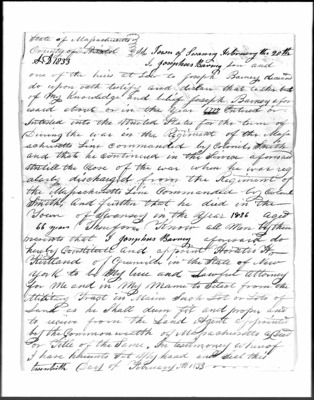 State of Massachusetts
County of Bristol
AD 1833 the Town of Swansey the 20th
I Josephus Barney Son and
one of the heirs at Law to Joseph Barney deceased
do upon oath testify and declare that to the best
of My Knowledge and belief Joseph Barney afore
said about or in the Year Entered or
Inlisted into the United States for the term of
During the war in the Regiment of the Mass
achusetts Line commanded by Colonel Smith
and that he continued in the Service aforesaid
untill the Close of the war when he was
discharged from the Regiment of
the Massachusetts Line Commanded by Colonel
Smith, And further that he died in the
Town of Swansey in the Year 1826 aged
66 years Therefore Know all Men by these
presents that I Josephus Barney aforesaid do
hereby Constitute and appoint Horatio
Kirtland of Granville in the State of New
York to be My true and Lawful Attorney
for Me and in My Name to Select from the
Military Tract in Maine Such Lot or Lots of
Land as he Shall deem fit and proper and
to receive from the Land Agent appointed
by the Commonwealth of Massachusetts a Deed
or Title of the Same. In testimony whereof
I have hereunto set My hand and Seal this
twentieth Day of February AD 1833